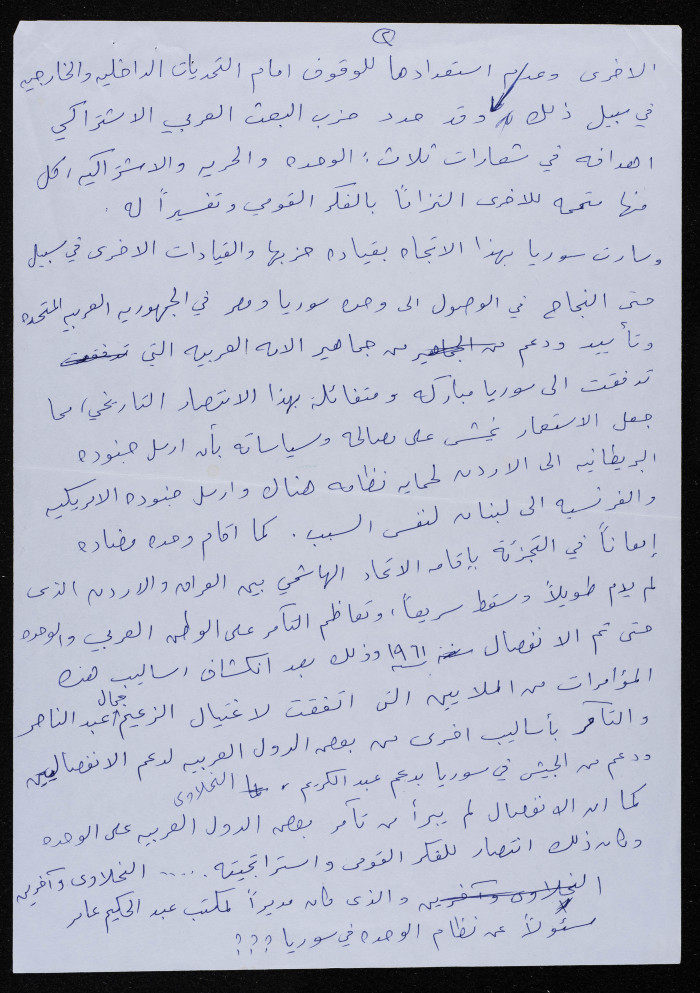 ٢
الاخرى وعدم استعدادها للوقوف امام التحديات الداخليه والخارجيه
في سبيل ذلك وقد حدد حزب البعث العربي الاشتراكي
اهدافه في شعارات ثلاث : الوحده والحريه والاشتراكيه ، كل
منها متممه للاخرى التزاناً بالفكر القومي وتفسيراً له .
وسارت سوريا بهذا الاتجاه بقياده حزبها والقيادات الاخرى في سبيل
حتى النجاح في الوصول الى وحده سوريا ومصر في الجمهوريه العربيه المتحده
وتأييد ودعم من الجماهير من جماهير الامه العربيه التي تدفقت
تدفقت الى سوريا مباركه ومتفائلة بهذا الانتصار التاريخي ، مما
جعل الاستعمار يخشى على مصالحه وسياساته بأن ارسل جنوده
البريطانيه الى الاردن لحمايه نظامه هناك وارسل جنوده الامريكيه
والفرنسيه الى لبنان لنفس السبب . كما اقام وحده مضاده
إمعاناً في التجزئة بإقامه الاتحاد الهاشمي بين العراق والاردن الذى
لم يدم طويلاً وسقط سريعاً ، وتعاظم التآمر على الوطن العربي والوحده
حتى تم الانفصال سنة ١٩٦١ وذلك بعد انكشاف اساليب هذه
المؤامرات من الملايين التى اتفقت لاغتيال الزعيم جمال عبد الناصر
والتآمر بأساليب اخرى من بعض الدول العربيه لدعم الانفصاليين
ودعم من الجيش في سوريا بدعم عبد الكريم النحلاوى
كما ان الانفصال لم يبرأ من تآمر بعض الدول العربيه على الوحده
وكان ذلك انتصار للفكر القومى واستراتجيته ..... النحلاوى وآخرين
النحلاوى وآخرين والذى كان مديراً لمكتب عبد الحكيم عامر
مسئولاً عن نظام الوحده في سوريا ؟؟؟